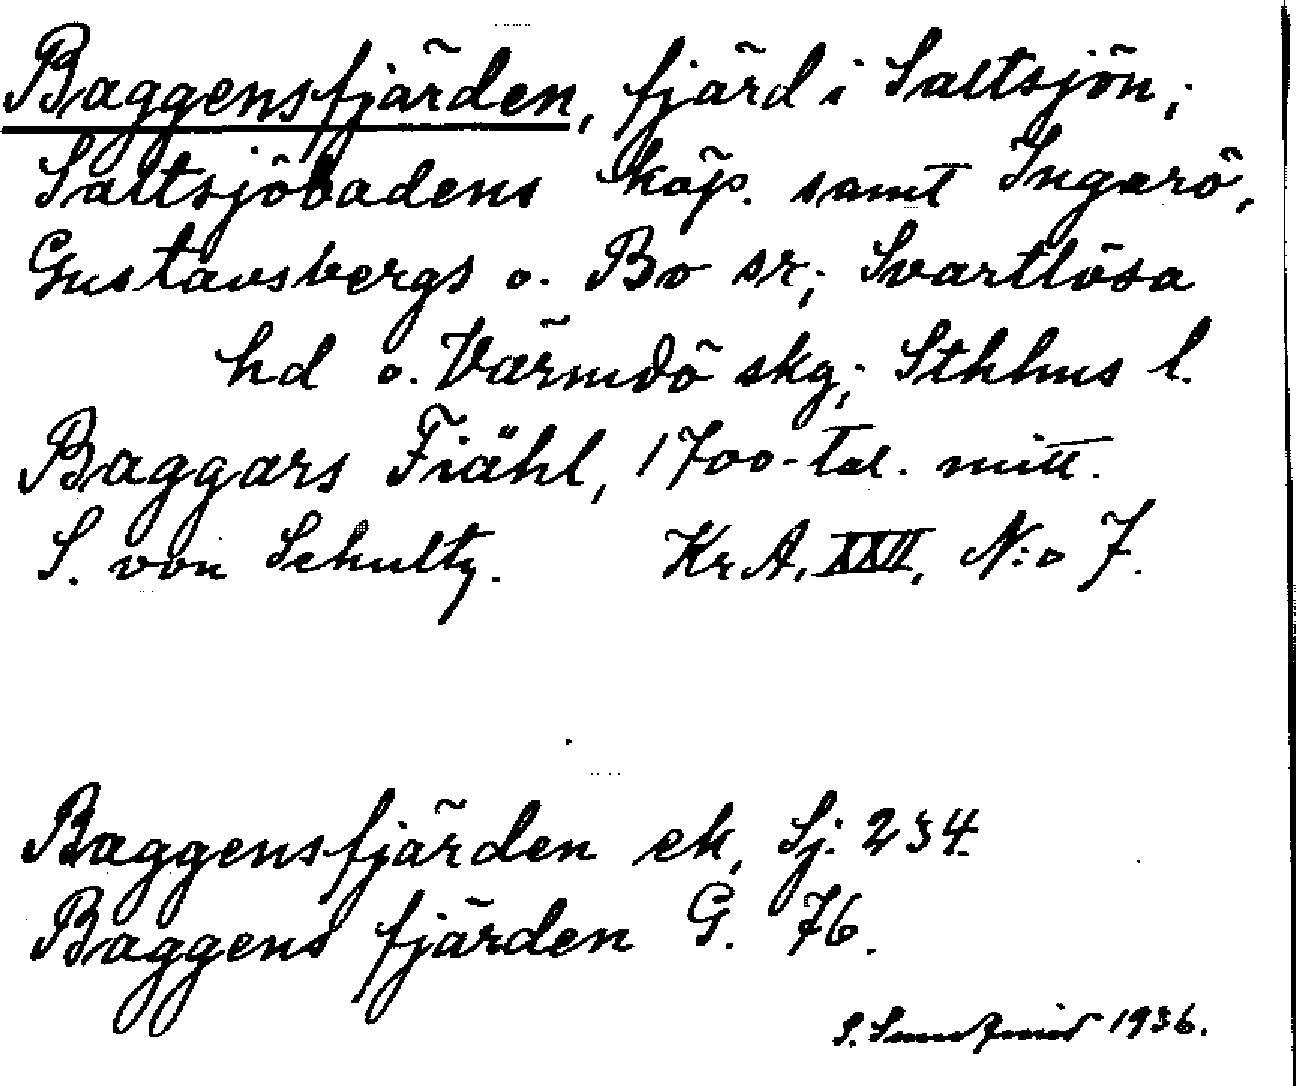 Baggensfjärden, fjärd i Saltsjön;
Saltsjöbadens köp. samt Ingarö,
Gustavsbergs o. Bo sr; Svartlösa
hd o. Värmdö skg; Sthlms l.
Baggars Fiähl, 1700-tal. mitt.
S. von Schultz. Kr A, XXV, N:o 7.
Baggensfjärden ek, Sj: 234.
Baggens fjärden G. 76.
S. 1936.